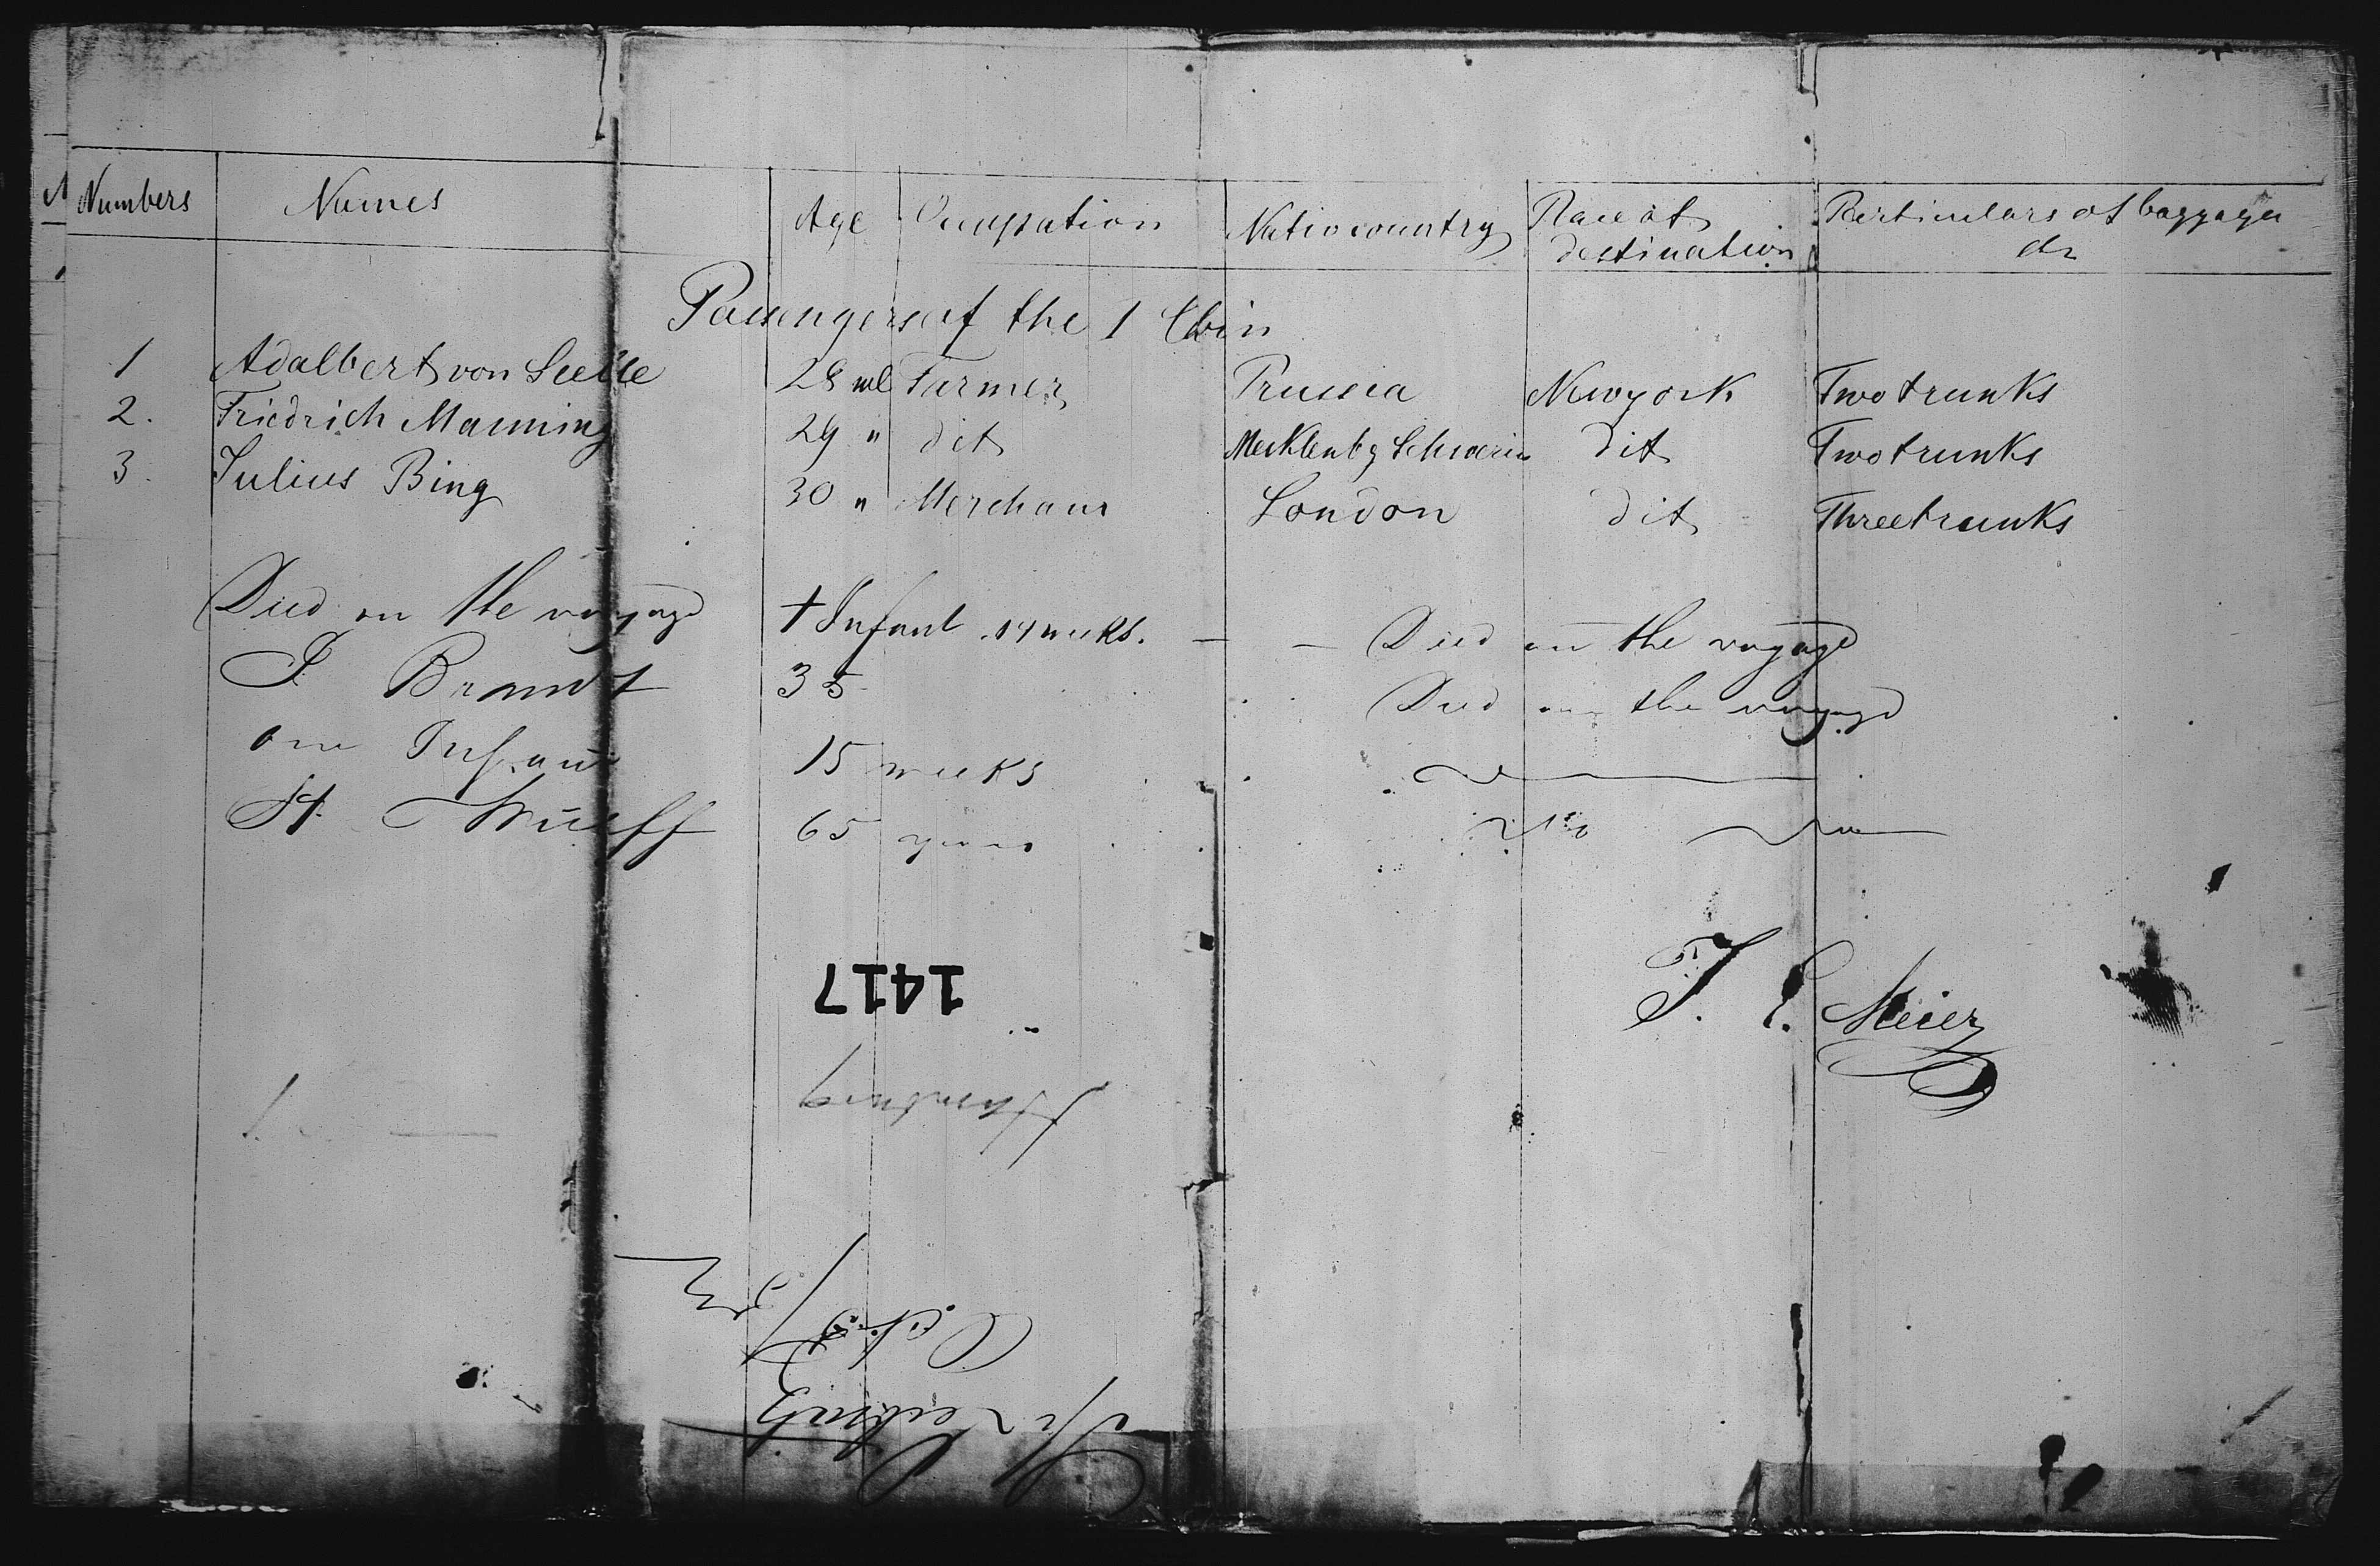 Numbers Names Age Occupation Nativcountry Place of destination Particulars of baggage &c
Passengers of the 1 Cbin
1 Adalbert von 28 ml Farmer Prussia Newyork Two trunks
2. Friedrich Manning 29 " dit Mecklenbg Schwerin dit Two trunks
3. Julius Bing 30 " Merchant London dit Three trunks
Died on the voyage + Infant 14 weeks. — — Died on the voyage
J Brandt 35 Died on the voyage
one Infant 15 weeks
H. Wulff 65 years
J. C. Meier
1417
Hamburg
Oct. 3